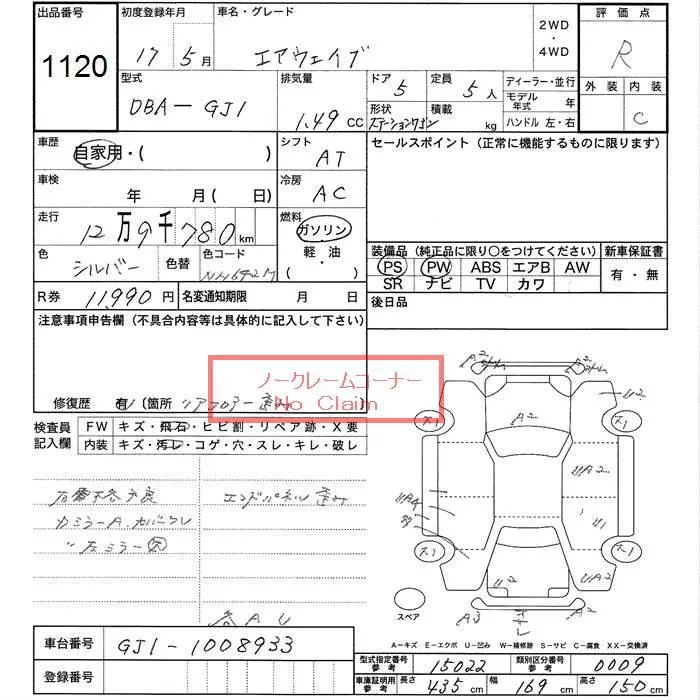 出品番号 初度登録年月 車名・グレード 2WD・4WD 評価点
1120 17年 5月 エアウェイブ R
型式 排気量 ドア 定員 ディーラー・並行 外装 内装
DBA-GJ1 1.49 CC 5 5人 モデル年式 年 C
形状 積載 ハンドル 左・右
ステーションワゴン kg
車歴 自家用・( ) シフト AT セールスポイント (正常に機能するものに限ります)
車検 年 月( 日) 冷房 AC
走行 12万9千780km 燃料 ガソリン
軽・油
・( )
色 シルバー 色替 色コード NH642M
装備品 (純正品に限り○をつけてください) 新車保証書
PS PW ABS エアB AW 有・無
SR ナビ TV カワ
R券 11,990円 名変通知期限 月 日 後日品
注意事項申告欄 (不具合内容等は具体的に記入して下さい)
ノークレームコーナー
No Claim
修復歴 有 (箇所 リアフロアー歪み
検査員記入欄 FW キズ・飛石・ヒビ割・リペア跡・X要
内装 キズ・汚レ・コゲ・穴・スレ・キレ・破レ
エンドパネル歪み
〃左ミラー欠
A2 A2 U2 UA2 U1 UA4 UA2 U2 A3 A2
スペア
A-キズ E-エクボ U-凹み W-補修跡 S-サビ C-腐食 XX-交換済
車台番号 GJ1-1008933
登録番号
型式指定番号 参考 15022 類別区分番号 参考 0009
車庫証明用 参考 長さ 435cm 幅 169cm 高さ 150cm